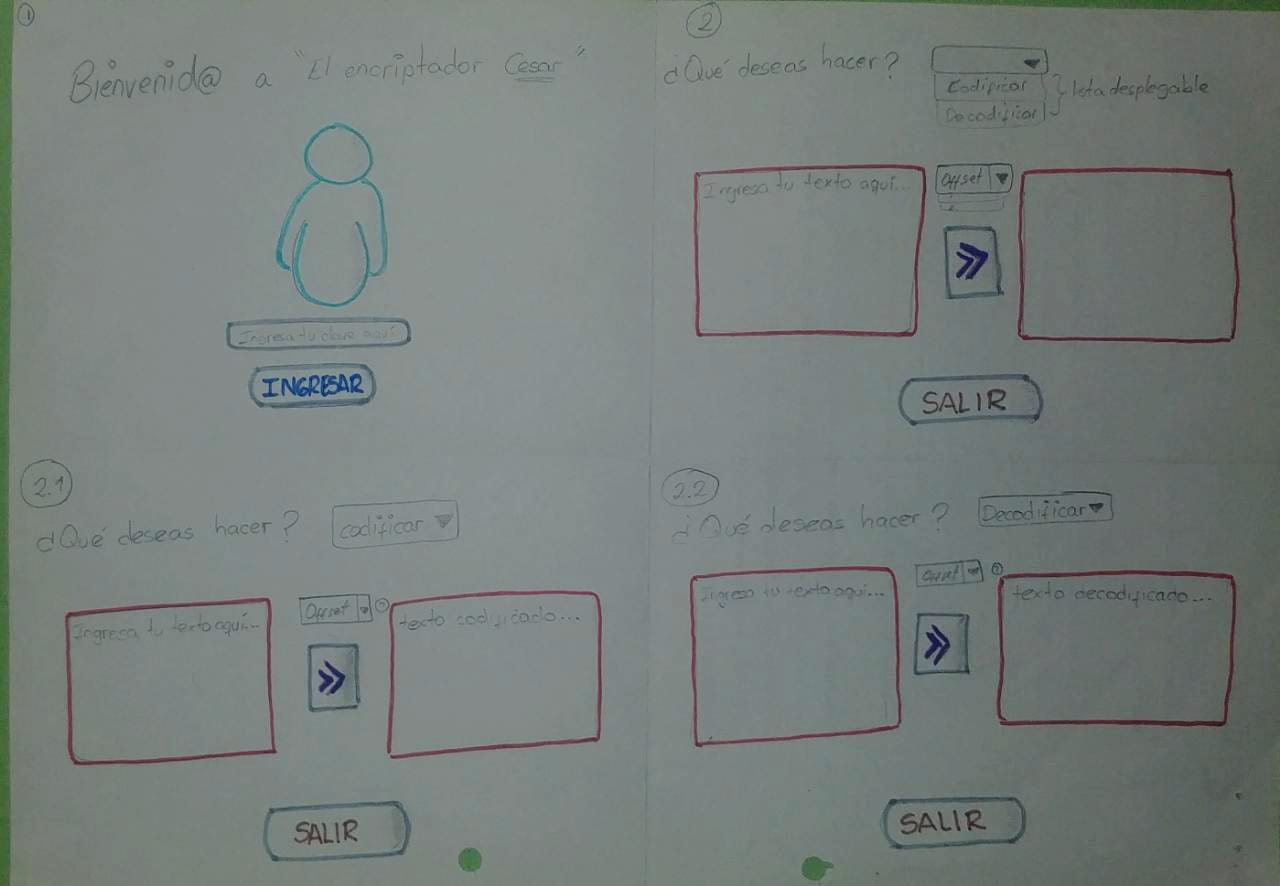 1
Bienvenid@ a "El encriptador Cesar"
Ingresa tu clave aquí
INGRESAR
2
¿Qué deseas hacer?
Codificar
Decodificar
lista desplegable
Ingresa tu texto aquí...
Offset
SALIR
2.1
¿Qué deseas hacer? codificar
Ingresa tu texto aquí...
Offset
texto codificado...
SALIR
2.2
¿Qué deseas hacer? Decodificar
Ingresa tu texto aquí...
Offset
texto decodificado...
SALIR